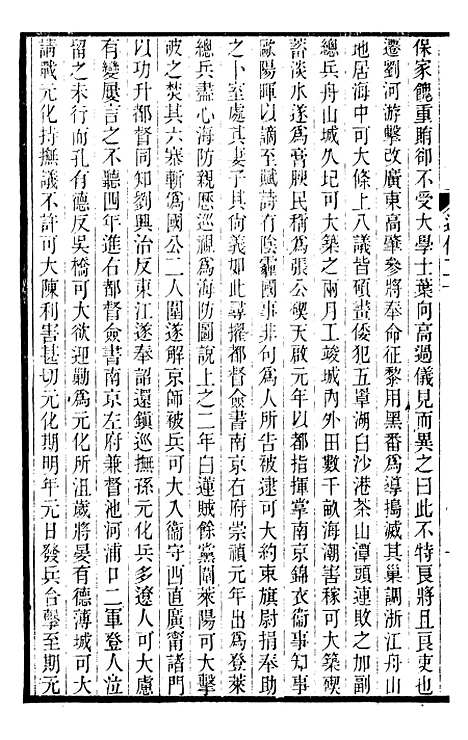 保家餽重賄卻不受大學士葉向高過儀見而異之曰此不特良將且良吏也
遷劉河游擊改廣東高肇參將奉命征黎用黑番爲導搗滅其巢調浙江舟山
地居海中可大條上八議皆碩畫倭犯五罩湖白沙港茶山潭頭連敗之加副
總兵舟山城久圮可大築之兩月工竣城內外田數千畝海潮害稼可大築碶
蓄淡水遂爲膏腴民稱爲張公碶天啟元年以都指揮掌南京錦衣衞事知事
歐陽暉以謫至賦詩有陰霾國事非句爲人所告被逮可大約束旗尉捐奉助
之卜室處其妻子其尙義如此尋擢都督僉書南京右府崇禎元年出爲登萊
總兵盡心海防親歷巡視爲海防圖說上之二年白蓮賊餘黨圍萊陽可大擊
破之焚其六寨斬僞國公二人圍遂解京師被兵可大入衞守西直廣甯諸門
以功升都督同知劉興治反東江遂奉詔還鎭巡撫孫元化兵多遼人可大慮
有變屢言之不聽四年進右都督僉書南京左府兼督池河浦口二軍登人泣
留之未行而孔有德反吳橋可大欲迎勦爲元化所沮歲將晏有德薄城可大
請戰元化持撫議不許可大陳利害甚切元化期明年元日發兵合擊至期元